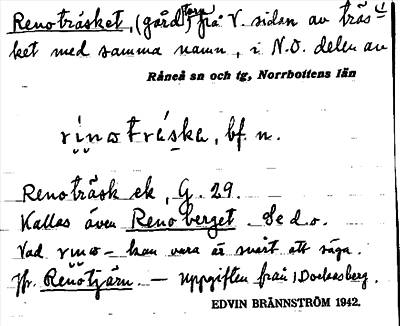 Renoträsket, (gård) Torp på V. sidan av träs-
ket med samma namn, i N.O. delen av
Råneå sn och tg, Norrbottens län
rinoträska, bf. n.
Renoträsk ek, G. 29.
Kallas även Renoberget. Se d.o.
Vad rino- kan vara är svårt att säga.
Jfr. Renötjärn. — Uppgiften från
EDVIN BRÄNNSTRÖM 1942.